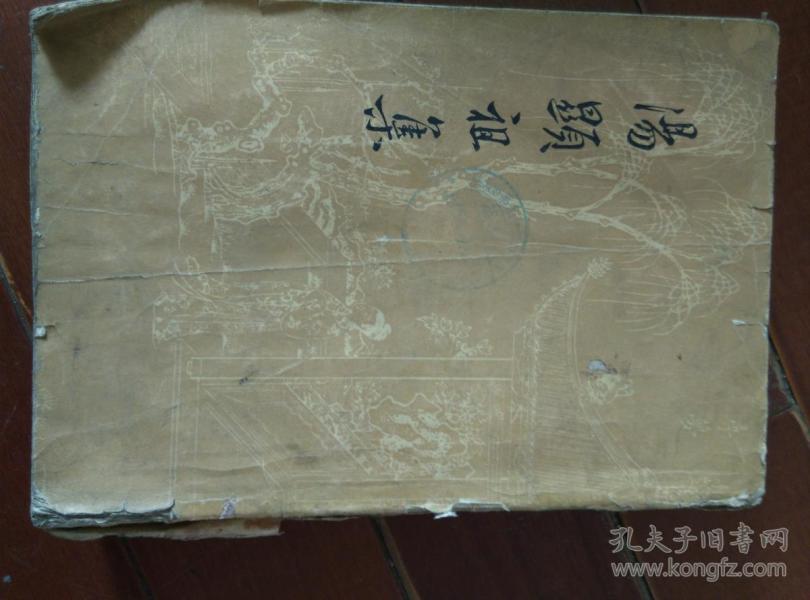 湯顯祖集
孔夫子旧书网
www.kongfz.com